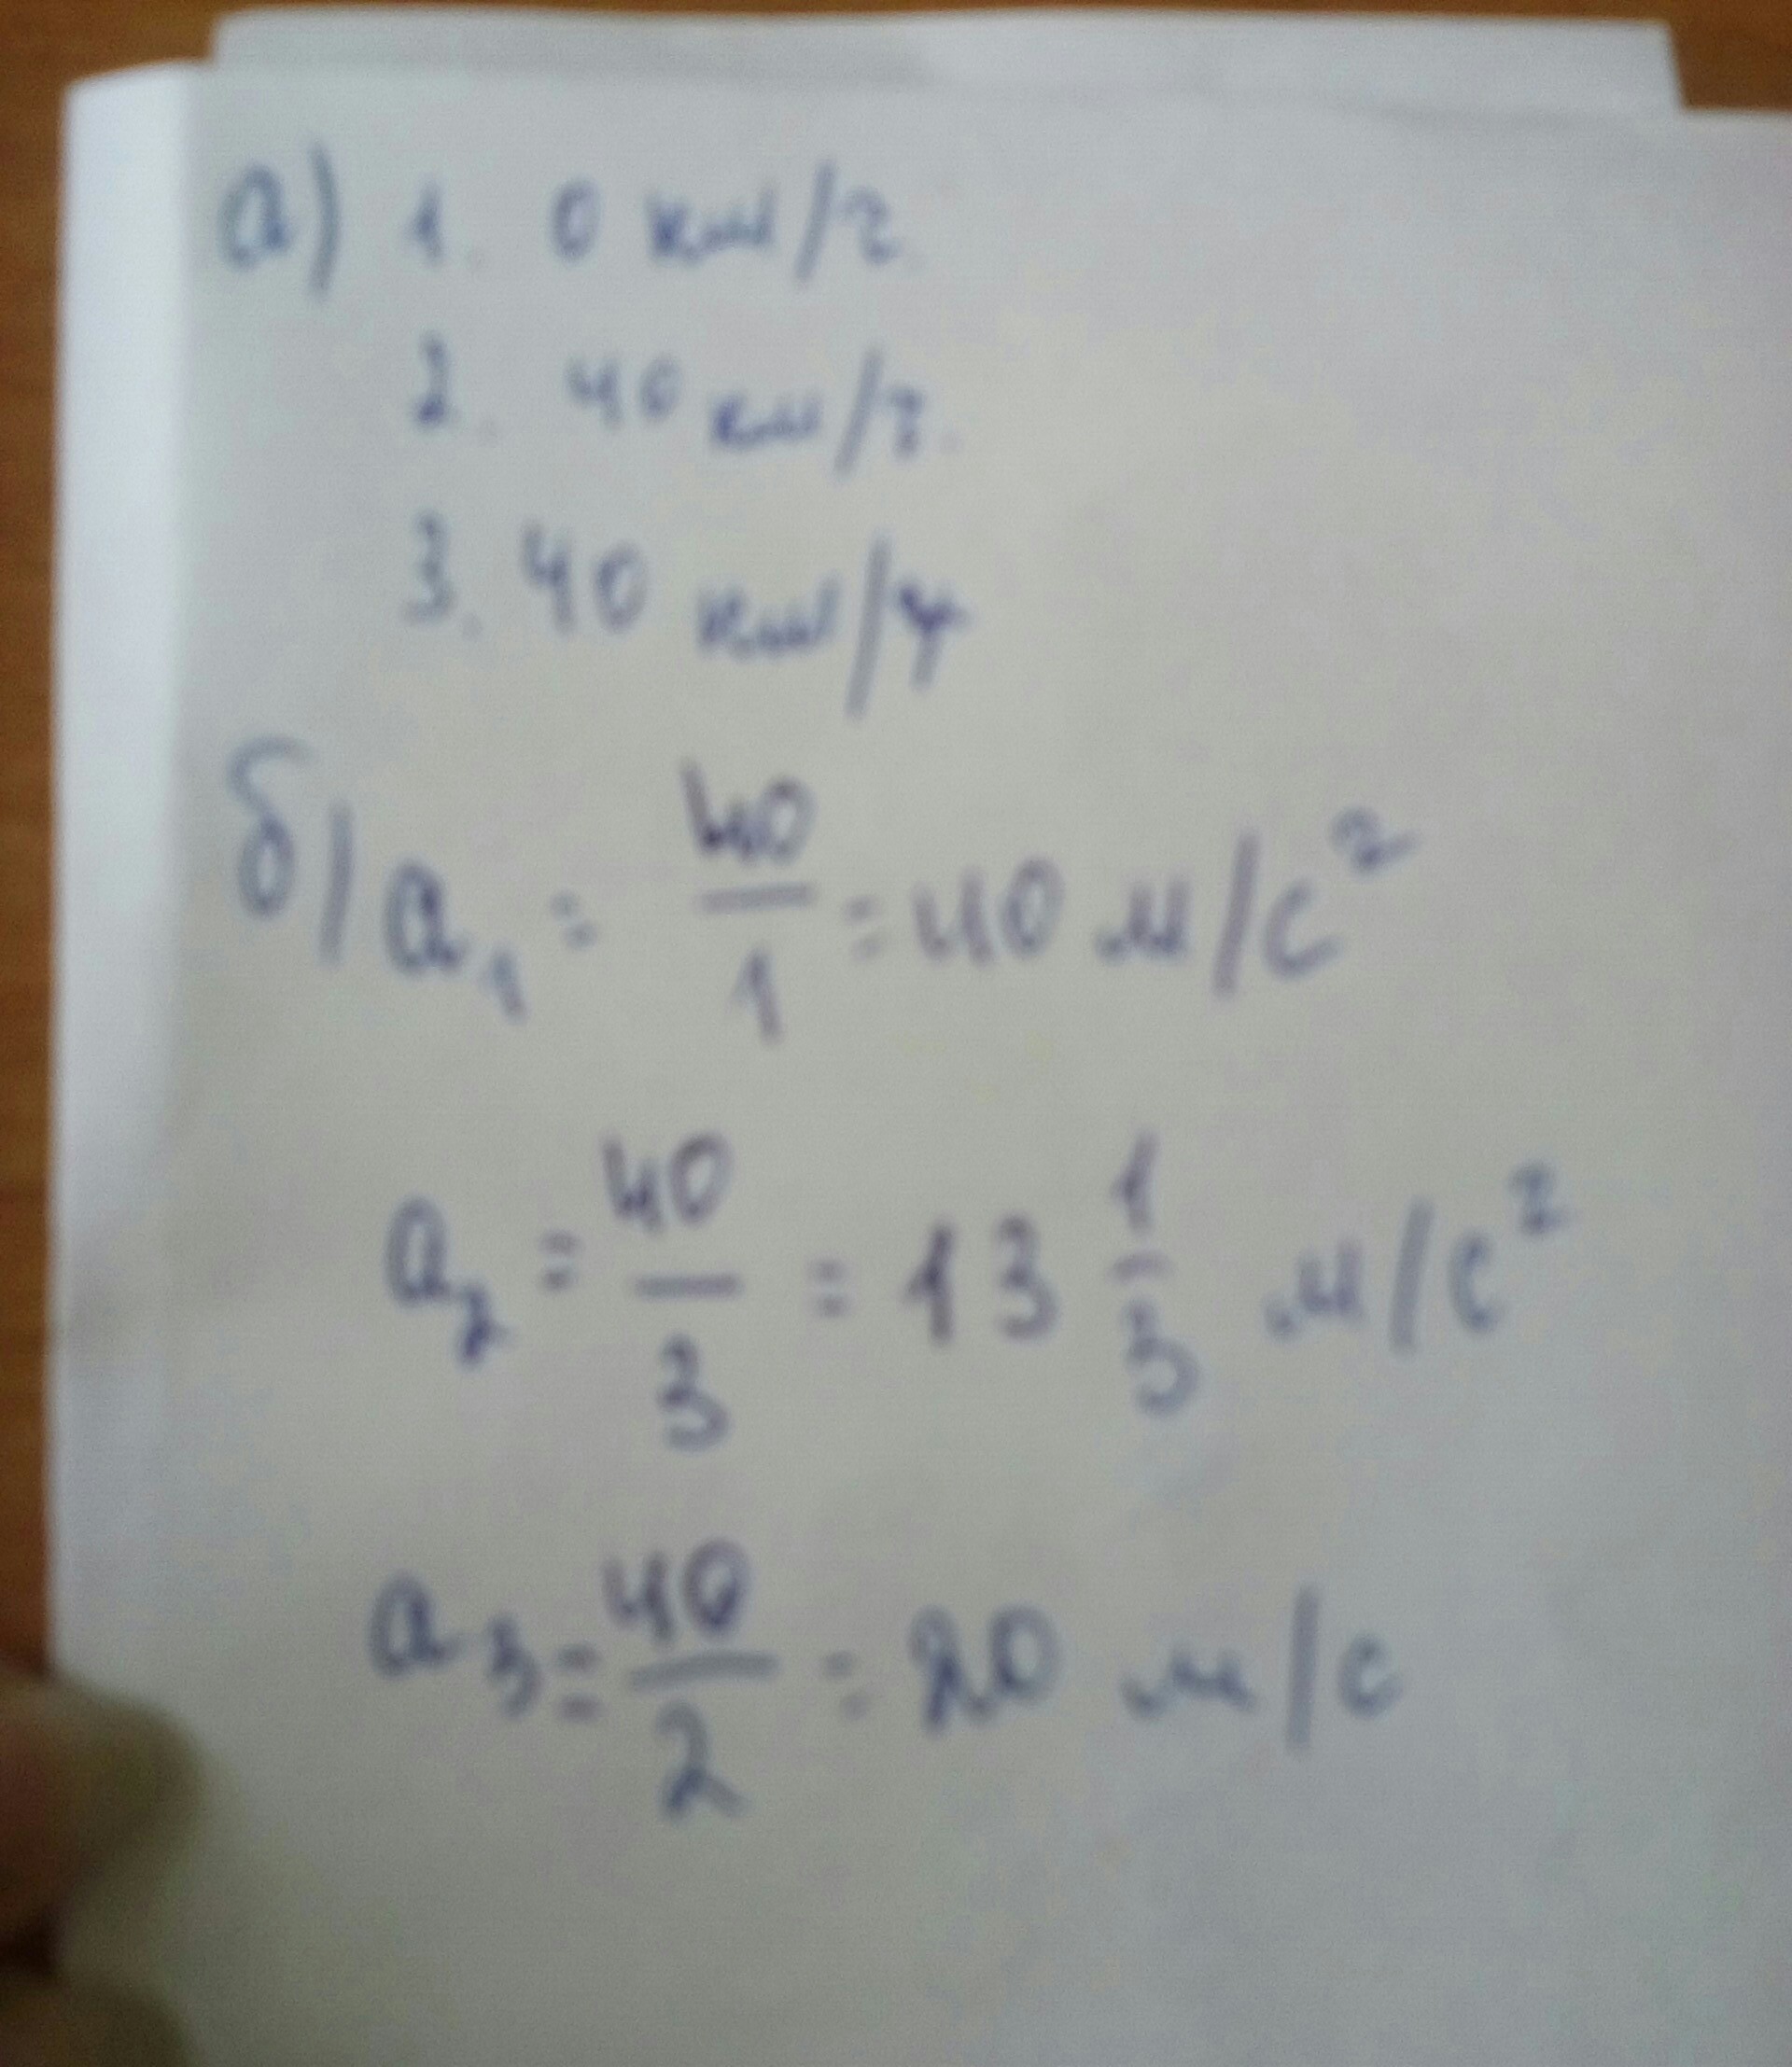 а) 1. 0 км/ч
2. 40 км/ч.
3. 40 км/ч
б) a₁ = 40/1 = 40 м/с²
a₂ = 40/3 = 13 1/3 м/с²
a₃ = 40/2 = 20 м/с